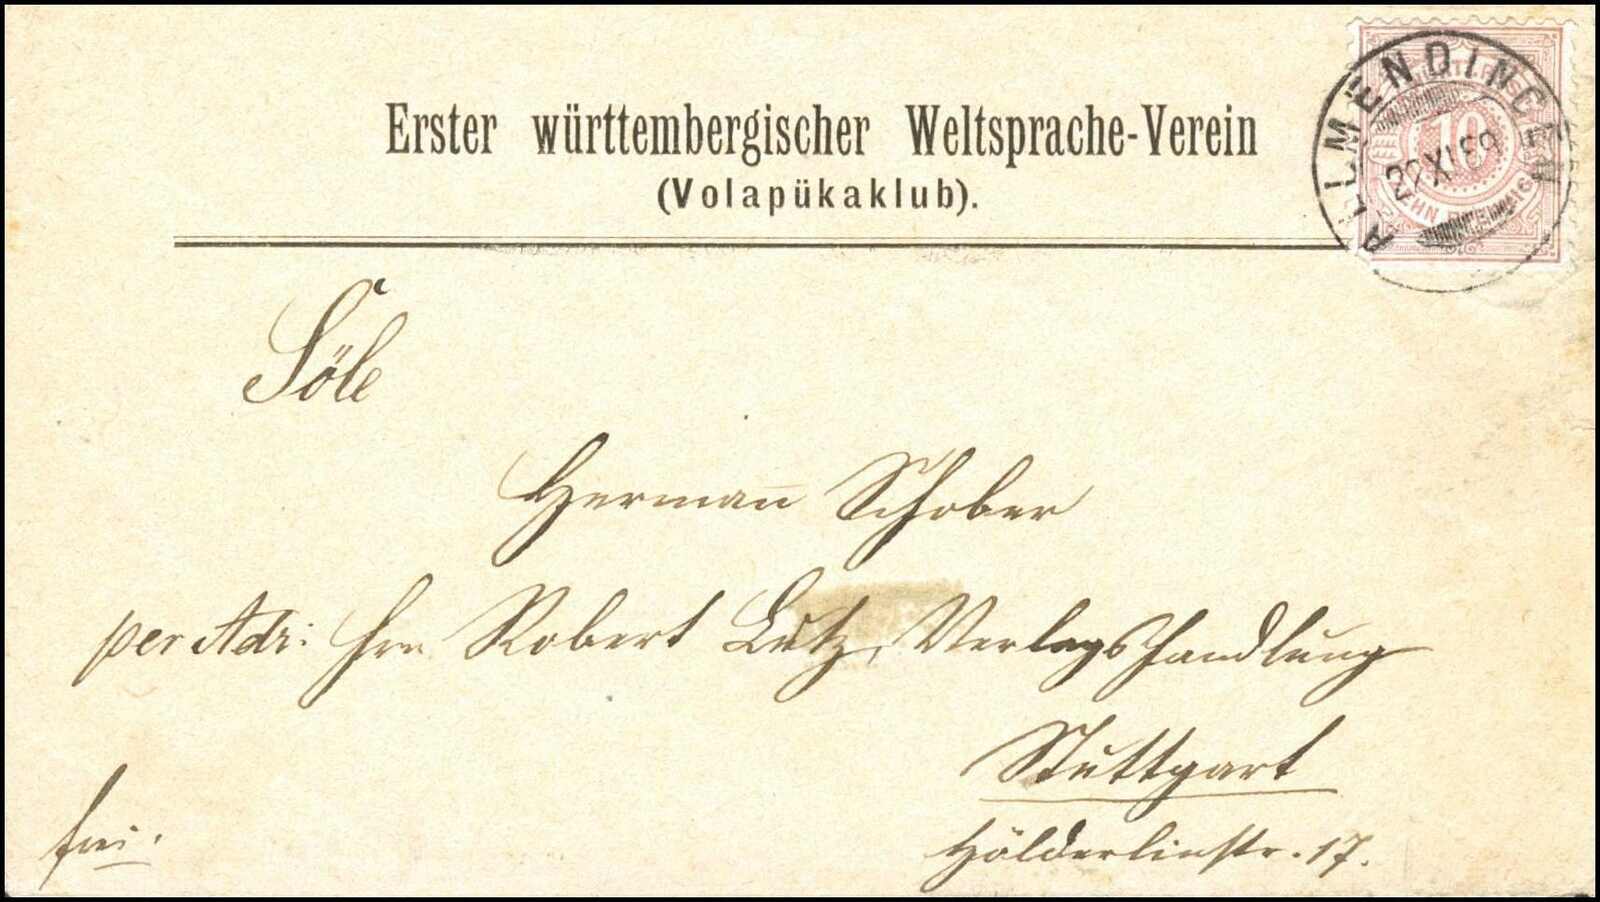 Erster württembergischer Weltsprache-Verein
(Volapükaklub).
ALLMENDINGEN
10
ZEHN PFENNIG
Söle
Herman̄ Schober
per Adr: Hrn Robert Lutz, Verlagshandlung
Stuttgart
Hölderlinstr. 17.
frei.